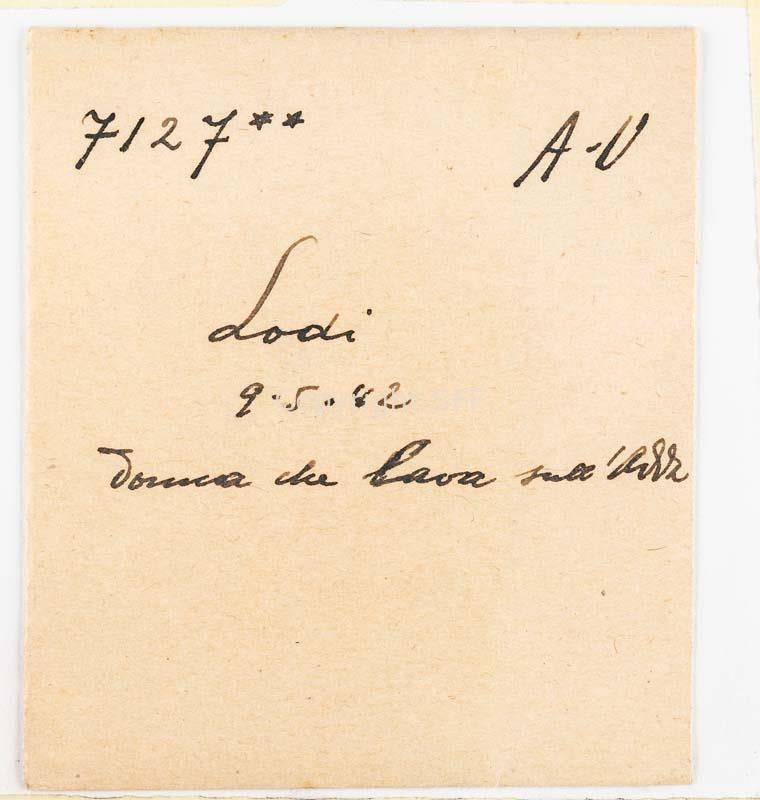 7127** A-V
Lodi
9.5.42
Donna che lava sull'Adda